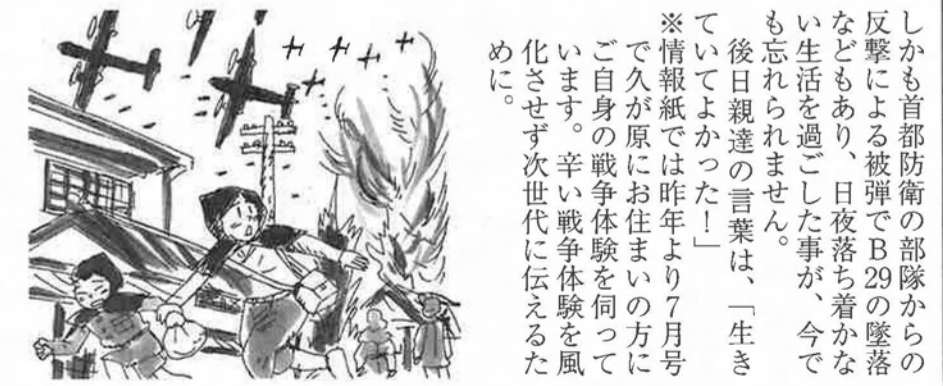 しかも首都防衛の部隊からの
反撃による被弾でB29の墜落
などもあり、日夜落ち着かな
い生活を過ごした事が、今で
も忘れられません。
後日親達の言葉は、「生き
ていてよかった！」
※情報紙では昨年より7月号
で久が原にお住まいの方に
ご自身の戦争体験を伺って
います。辛い戦争体験を風
化させず次世代に伝えるた
めに。